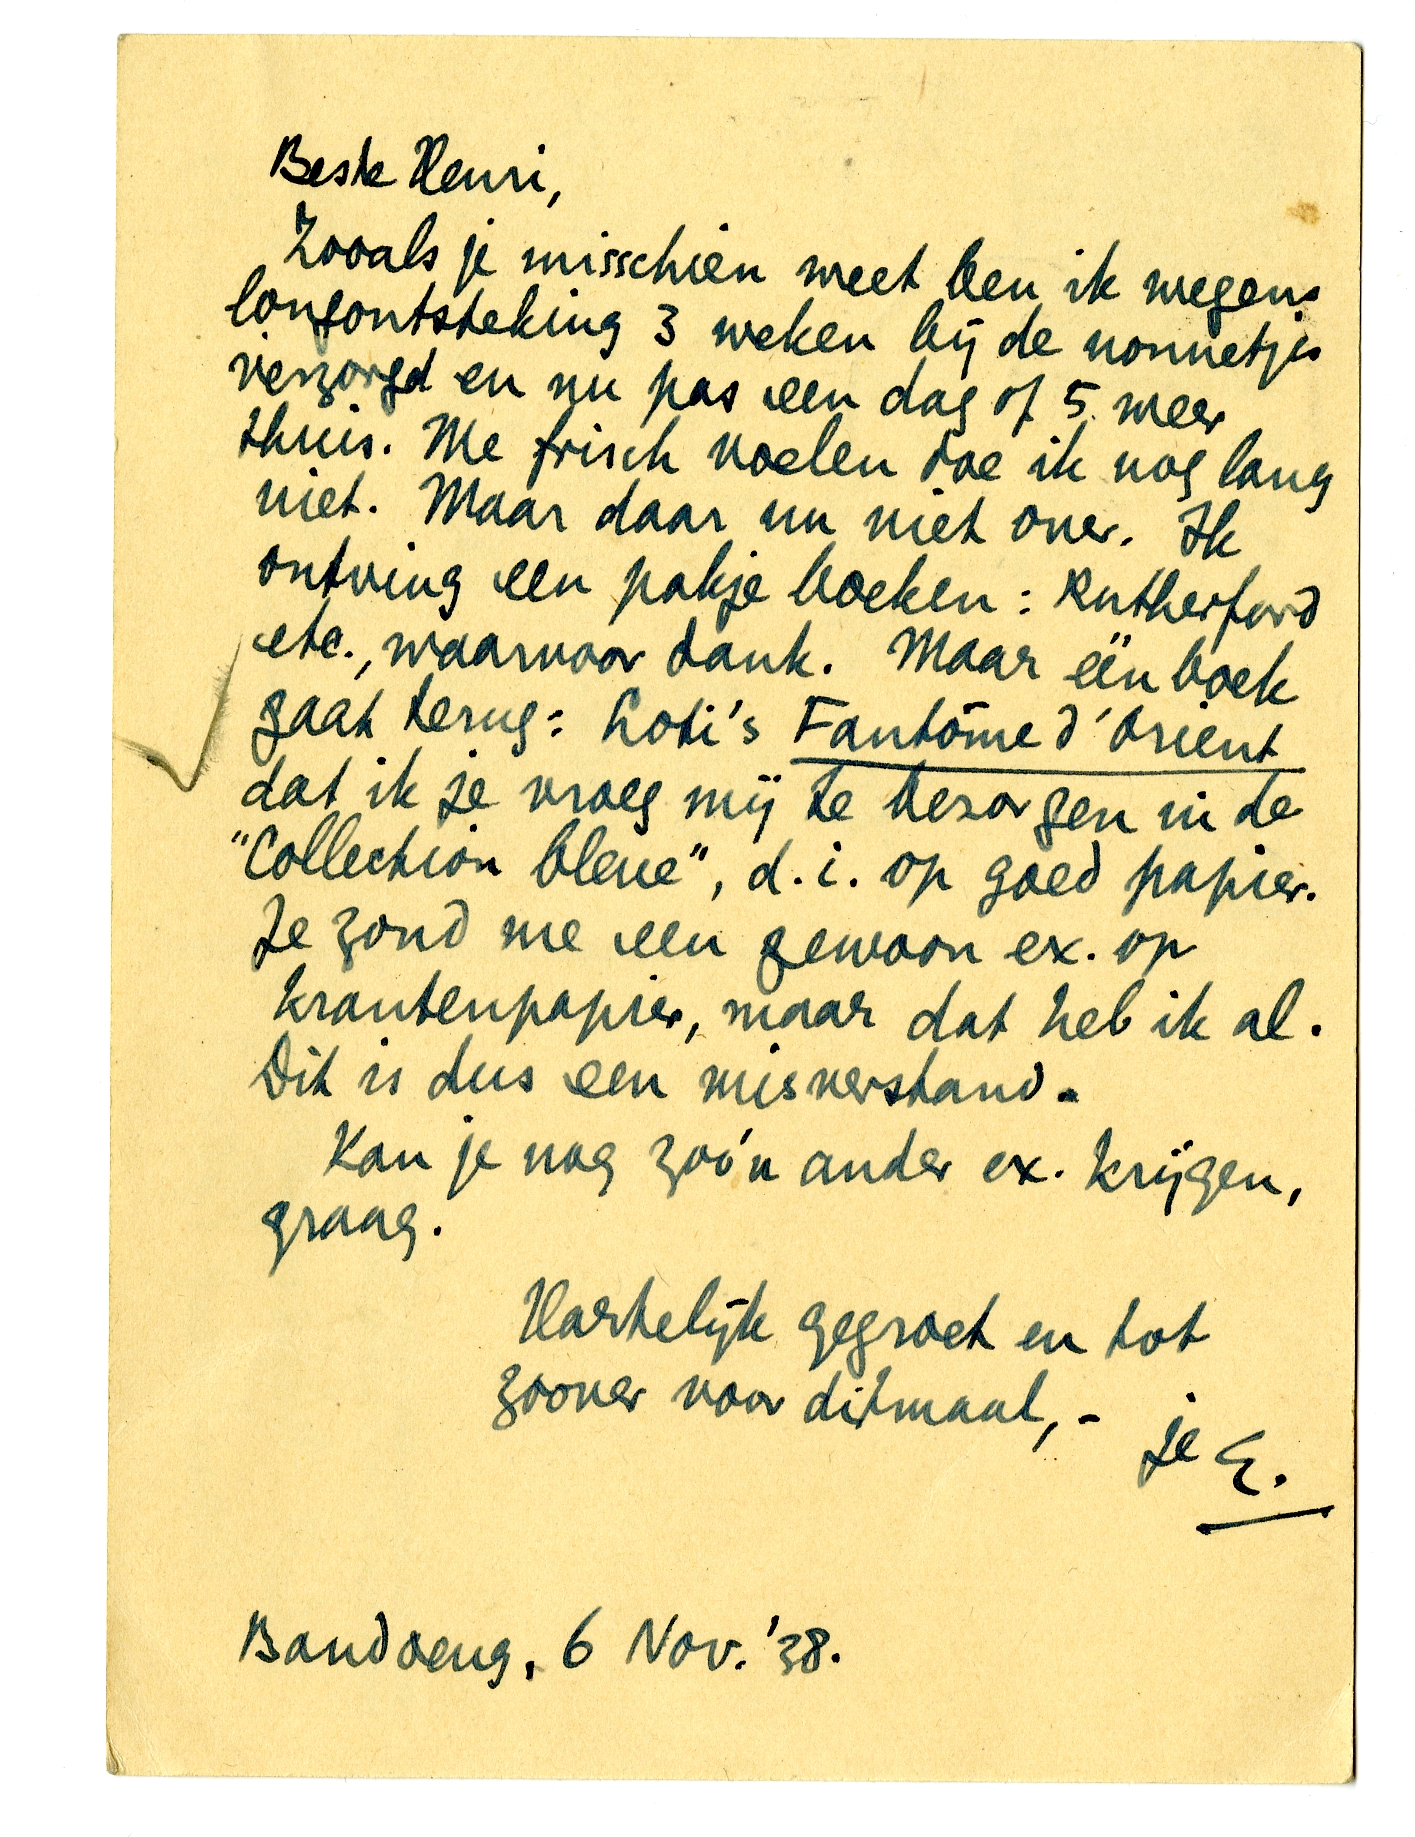 Beste Henri,
Zooals je misschien weet ben ik wegens
longontsteking 3 weken bij de nonnetjes
verzorgd en nu pas een dag of 5 weer
thuis. Me frisch voelen doe ik nog lang
niet. Maar daar nu niet over. Ik
ontving een pakje boeken: Rutherford
etc., waarvoor dank. Maar één boek
gaat terug: Loti's Fantôme d'Orient
dat ik je vroeg mij te bezorgen in de
"Collection bleue", d.i. op goed papier.
Je zond me een gewoon ex. op
krantenpapier, maar dat heb ik al.
Dit is dus een misverstand.
Kan je nog zoo'n ander ex. krijgen,
graag.
Hartelijk gegroet en tot
zoover voor ditmaal, -
je E.
Bandoeng, 6 Nov. '38.